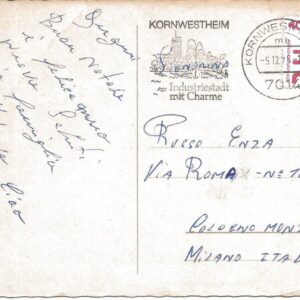 Auguri
Buon Natale
e felice anno
nuovo Saluti
famiglia
Ciao
KORNWESTHEIM
Industriestadt
mit Charme
KORNWEST
-5.12.7
701
RUSSO ENZA
VIA ROMA-
COLOGNO MONZ
MILANO ITAL